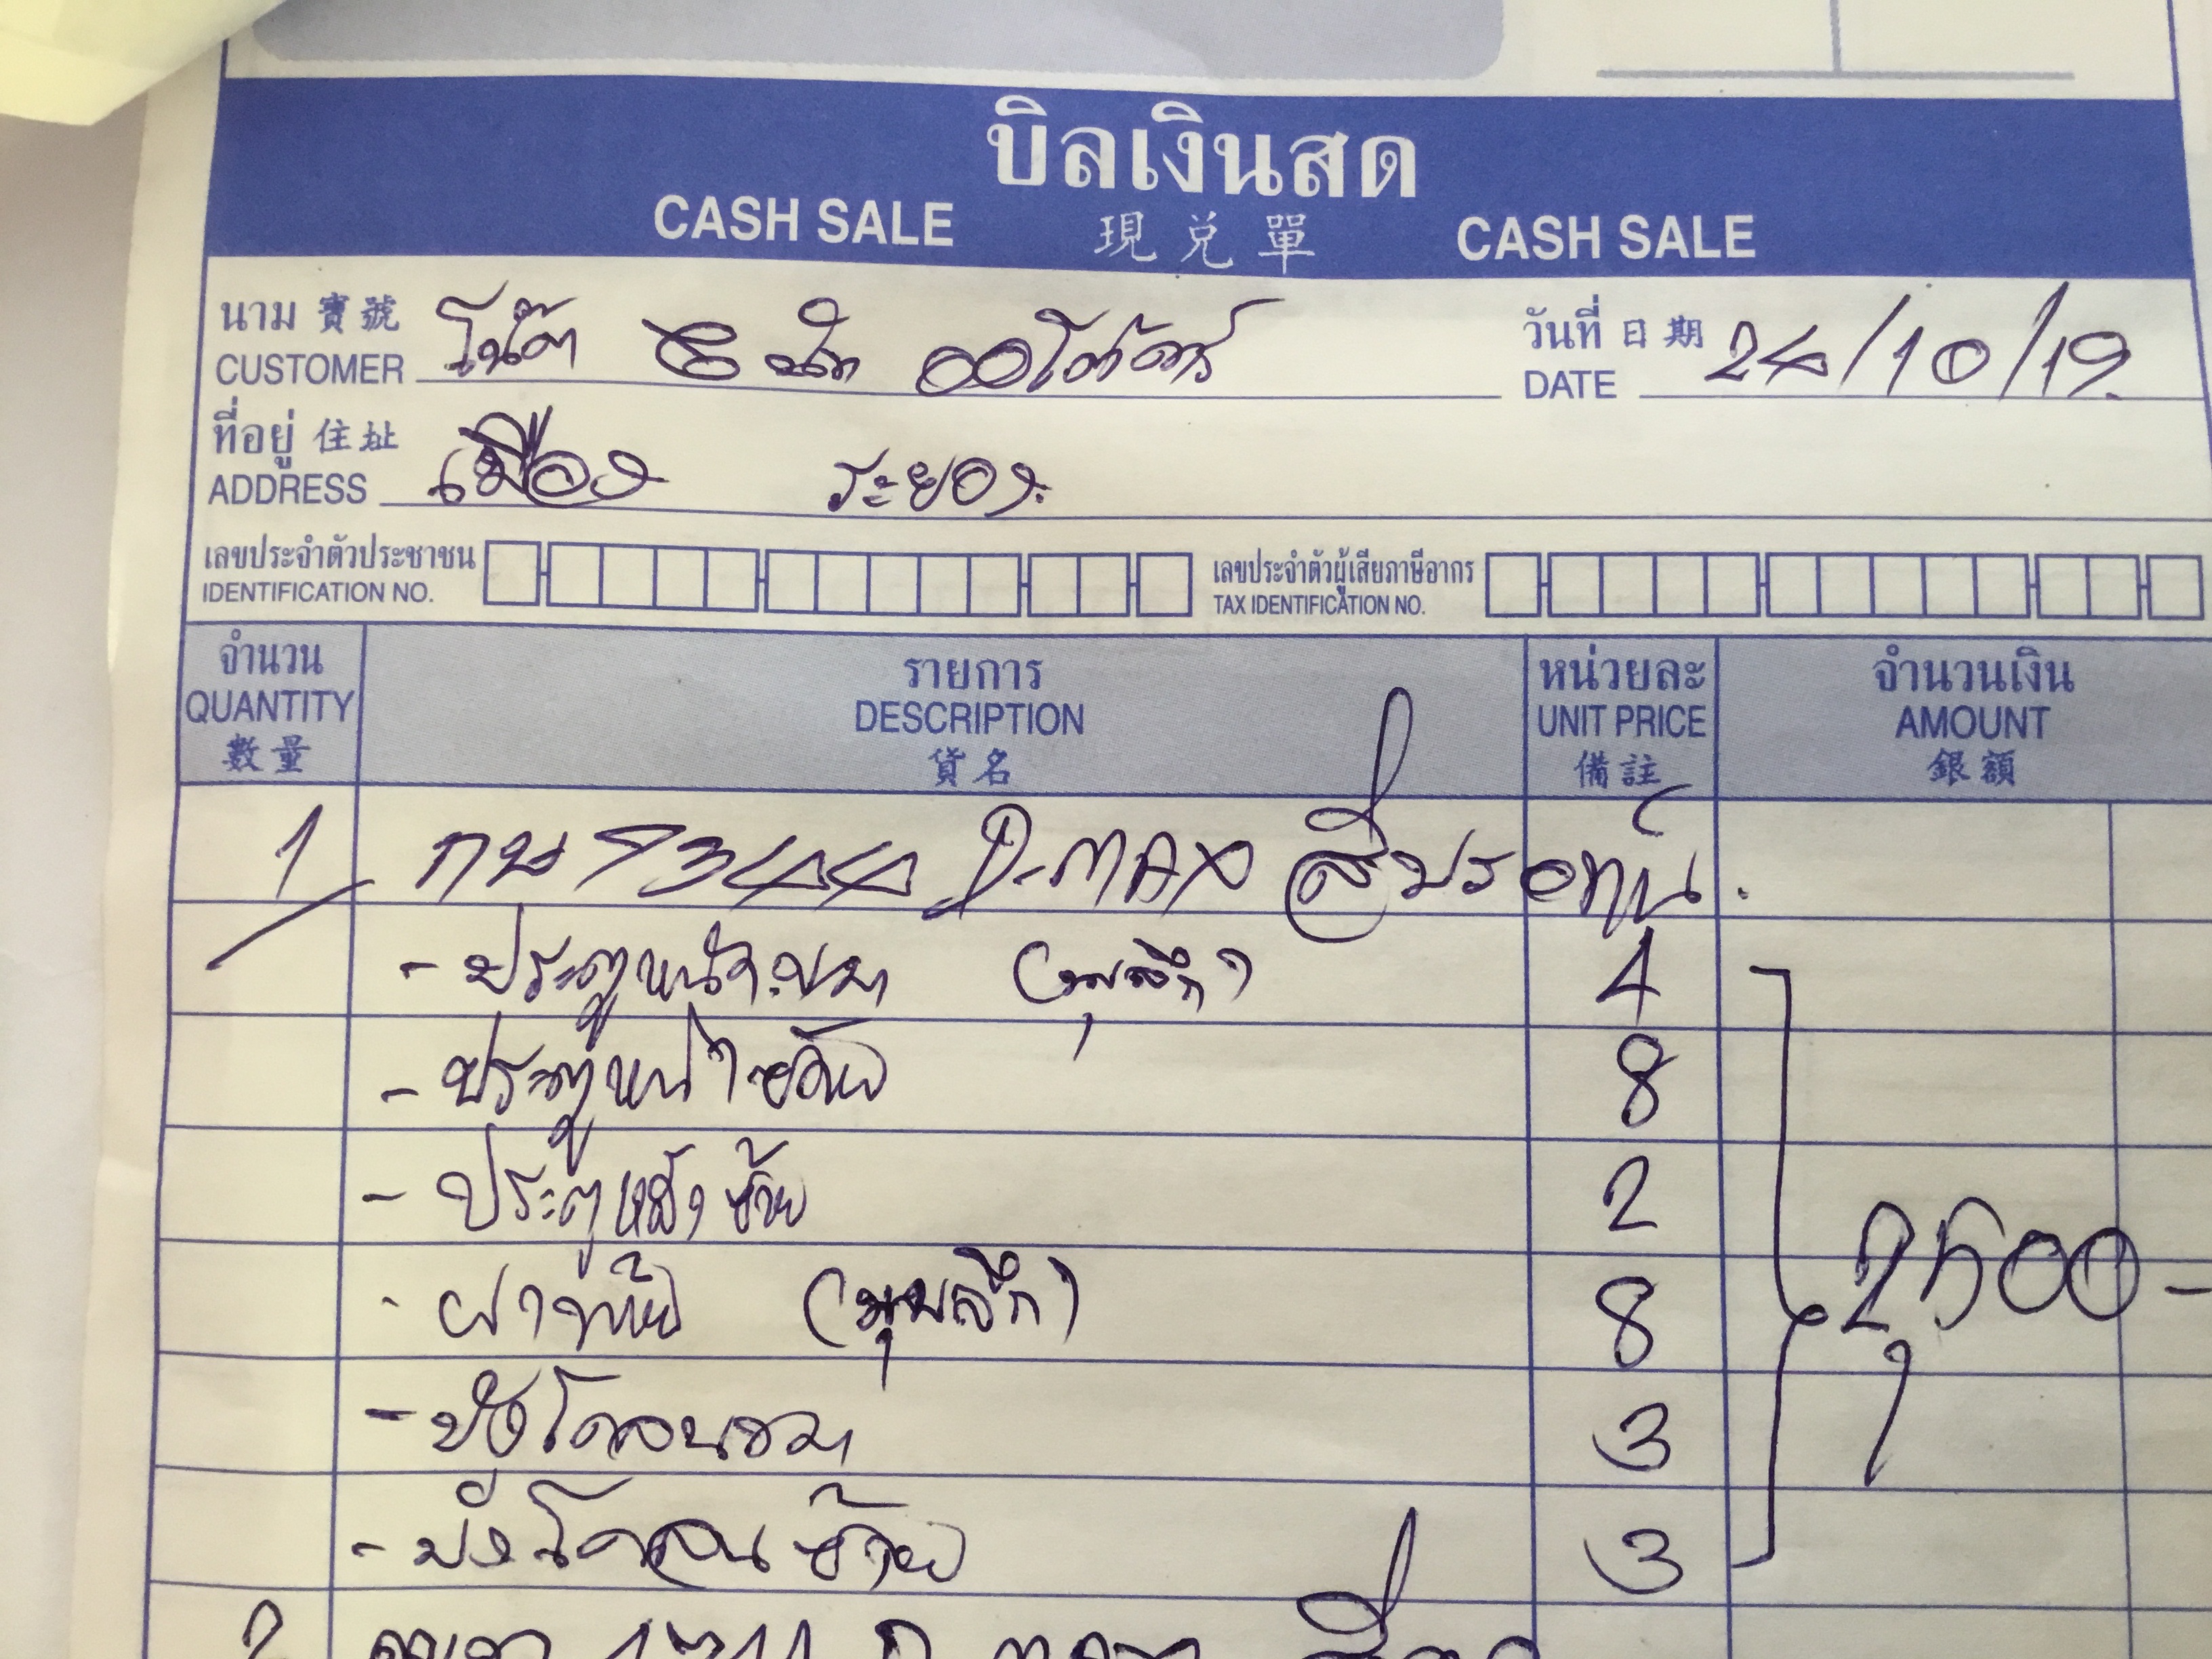 บิลเงินสด
CASH SALE 現兑單 CASH SALE
นาม 寶號 โน๊ต วันที่ 日期 24/10/19
CUSTOMER DATE
ที่อยู่ 住址 เมือง ระยอง
ADDRESS
เลขประจำตัวประชาชน เลขประจำตัวผู้เสียภาษีอากร
IDENTIFICATION NO. TAX IDENTIFICATION NO.
จำนวน รายการ หน่วยละ จำนวนเงิน
QUANTITY DESCRIPTION UNIT PRICE AMOUNT
數量 貨名 備註 銀額
1 กษ 7344 D-MAX สีบรอทน์
- ประตูหน้าขวา (มุมลึก) 4
- ประตูหน้าซ้าย 8
- ประตูหลังซ้าย 2
- ฝาท้าย (มุมลึก) 8 2500-
- บังโคลนขวา 3
- บังโคลนซ้าย 3
2